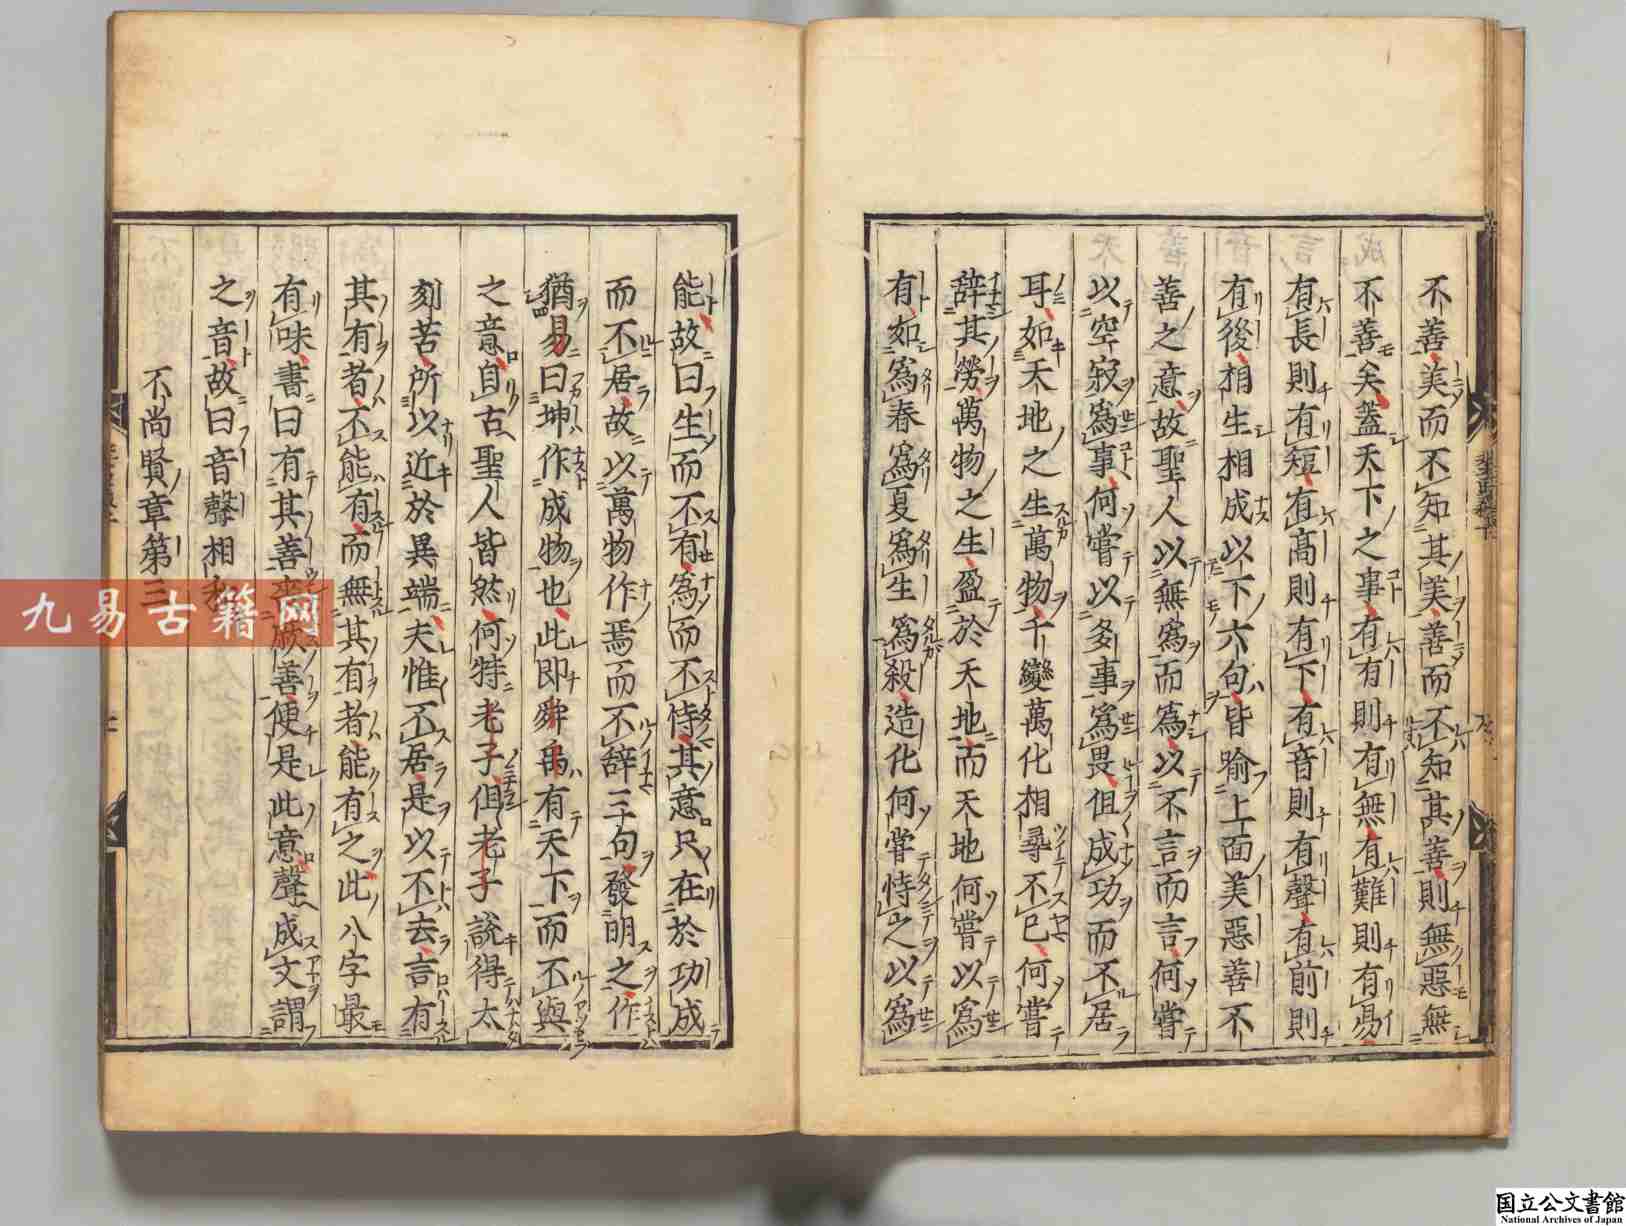 不善美而不知其美善而不知其善則無惡無
不善矣蓋天下之事有有則有無有難則有易
有長則有短有高則有下有音則有聲有前則
有後相生相成以下六句皆喻上面美惡善不
善之意故聖人以無為而為以不言而言何嘗
以空寂為事何嘗以多事為畏但成功而不居
耳如天地之生萬物千變萬化相尋不已何嘗
辭其勞萬物之生盈於天地而天地何嘗以為
有如為春為夏為生為殺造化何嘗恃之以為
能故曰生而不有為而不恃其意只在於功成
而不居故以萬物作焉而不辭三句發明之作
猶易曰坤作成物也此即舜禹有天下而不與
之意自古聖人皆然何特老子但老子說得太
刻苦所以近於異端夫惟不居是以不去言有
其有者不能有而無其有者能有之此八字最
有味書曰有其善喪厥善便是此意聲成文謂
之音故曰音聲相和
不尚賢章第三
九易古籍网
国立公文書館
National Archives of Japan